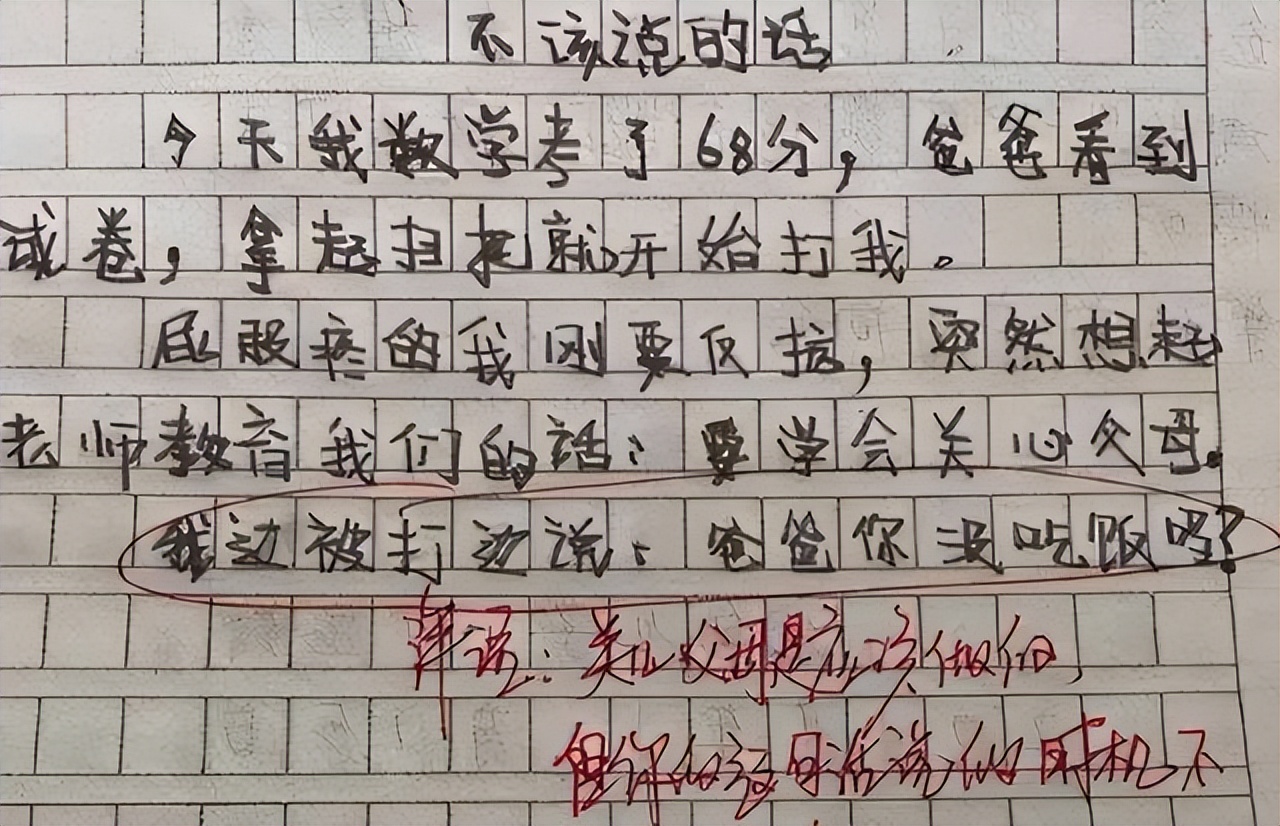 不该说的话
今天我数学考了68分，爸爸看到
试卷，拿起扫把就开始打我。
屁股疼的我刚要反抗，突然想起
老师教育我们的话：要学会关心父母。
我边被打边说：爸爸你没吃饭吗？
评语：关心父母是应该做的，
但你的这句话说的时机不